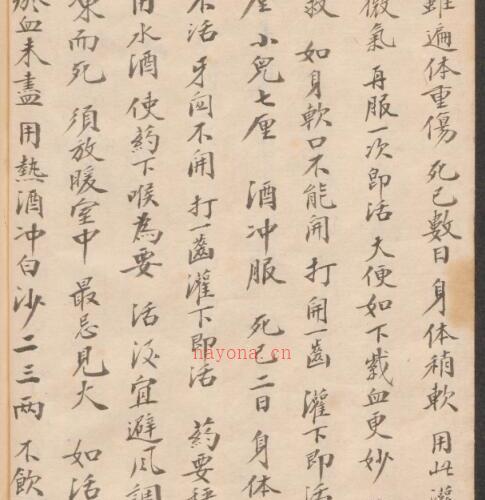 雖遍体重傷 死已数日 身体稍軟 用此灌
微氣 再服一次即活 大便如下紫血更妙
救 如身軟口不能開 打開一齒 灌下即活
厘 小兒七厘 酒冲服 死已二日 身体
不活 牙関不開 打一齒灌下即活 药要
用水酒 使药下喉為要 活後宜避風調
凍而死 須放暖室中 最忌見火 如活
瘀血未盡 用熱酒冲白沙二三两 不飲
nayona.cn